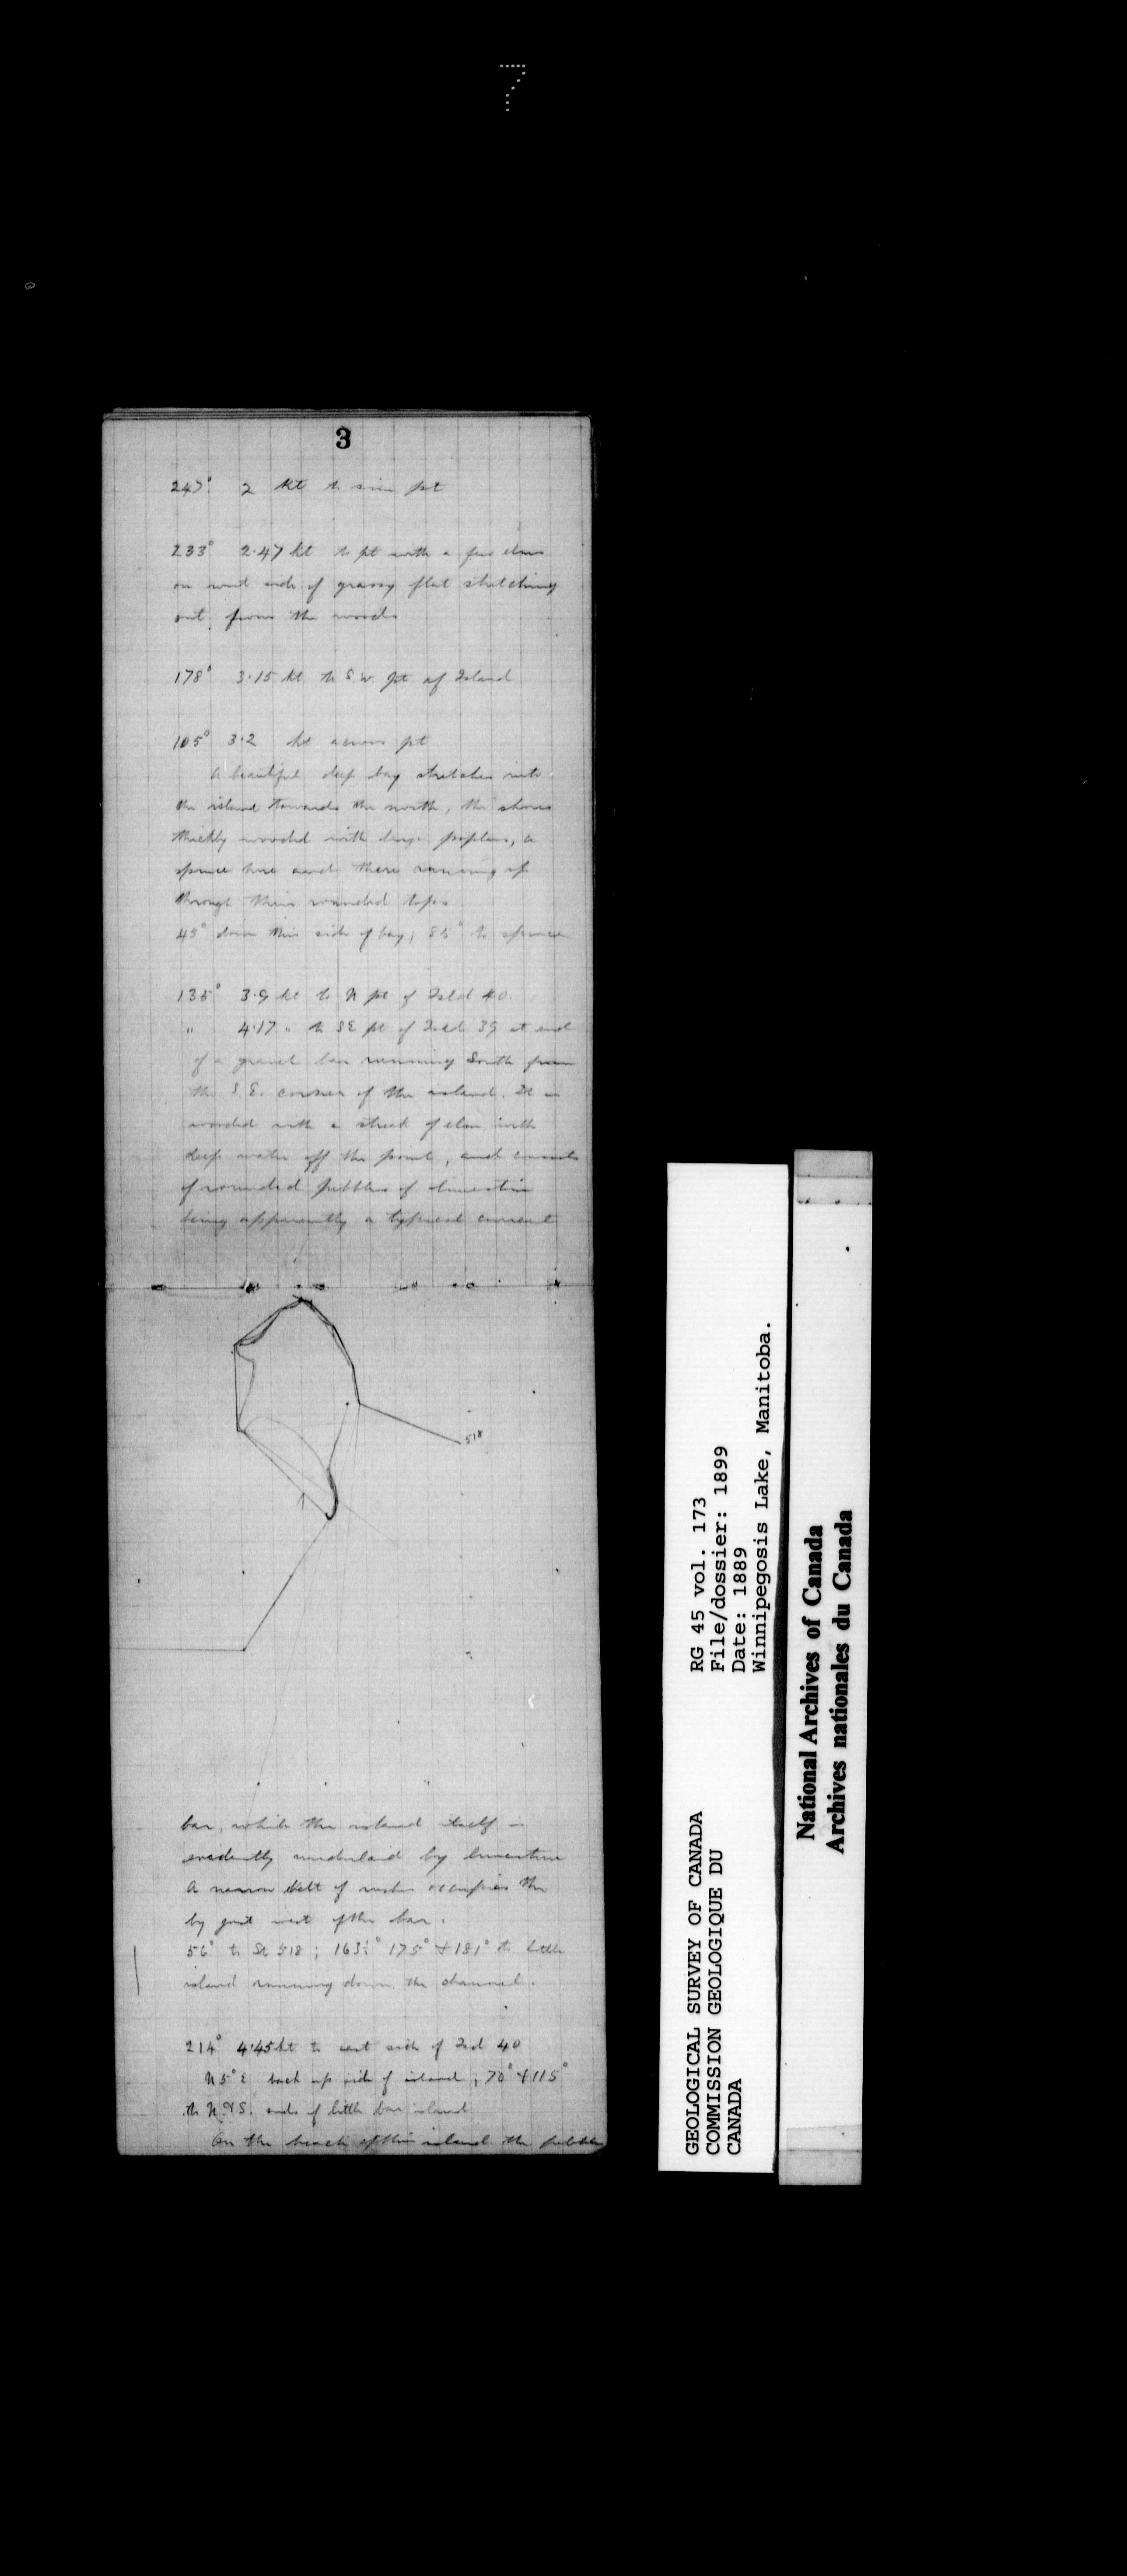 7
3
247° 2 kt to pt
233° 2.47 kt to pt with a few elms
on west side of grassy flat stretching
out from the woods
178° 3.15 kt to S.W. pt of Island
105° 3.2 kt across pt
A beautiful deep bay stretches into
the island towards the north, the shores
thickly wooded with large poplars, a
spruce here and there running up
through their rounded tops
45° down this side of bay; 85° to spruce
135° 3.9 kt to N pt of Isld 40.
" 4.17 " to SE pt of Isld 39 at end
of a gravel bar running South from
the S.E. corner of the island. It is
wooded with a streak of elm with
deep water off the point, and consists
of rounded pebbles of limestone
being apparently a typical current
518
bar, while the island itself is
evidently underlaid by limestone
A narrow belt of rushes occupies the
by just west of the bar.
56° to St 518; 163½° 175° & 181° to little
island running down the channel.
214° 4.45 kt to west side of Isd 40
N 5° E back up side of island; 70° & 115°
to N & S. ends of little bar island
On the beach of this island the pebbles
GEOLOGICAL SURVEY OF CANADA
COMMISSION GEOLOGIQUE DU
CANADA
RG 45 vol. 173
File/dossier: 1899
Date: 1889
Winnipegosis Lake, Manitoba.
National Archives of Canada
Archives nationales du Canada